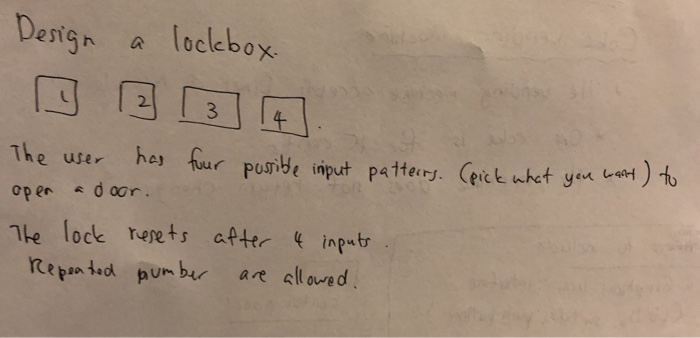 Design a lockbox.
1 2 3 4
The user has four possible input patterns. (pick what you want) to
open a door.
The lock resets after 4 inputs.
Repeated number are allowed.